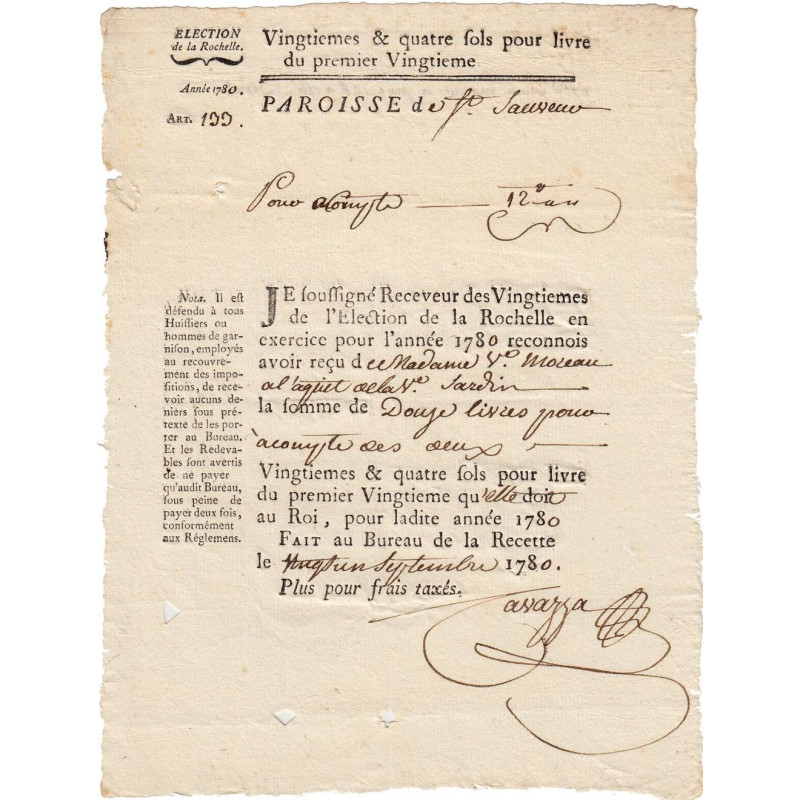 ELECTION
de la Rochelle.
Année 1780.
ART. 199.
Vingtiemes & quatre ſols pour livre
du premier Vingtieme
PAROISSE de St. Sauveur
Pour acompte — 12
Nota. Il est
défendu à tous
Huiſſiers ou
hommes de gar-
niſon, employés
au recouvre-
ment des impo-
ſitions, de rece-
voir aucuns de-
niers ſous pré-
texte de les por-
ter au Bureau.
Et les Redeva-
bles ſont avertis
de ne payer
qu'audit Bureau,
ſous peine de
payer deux fois,
conformément
aux Réglemens.
JE ſouſſigné Receveur des Vingtiemes
de l'Election de la Rochelle en
exercice pour l'année 1780 reconnois
avoir reçu de Madame Ve. Moreau
a l'aquit de la Ve. Jardin
la ſomme de Douze livres pour
àcompte des deux —
Vingtiemes & quatre ſols pour livre
du premier Vingtieme qu'elle doit
au Roi, pour ladite année 1780
FAIT au Bureau de la Recette
le vingt un Septembre 1780.
Plus pour frais taxés.
Tavazza